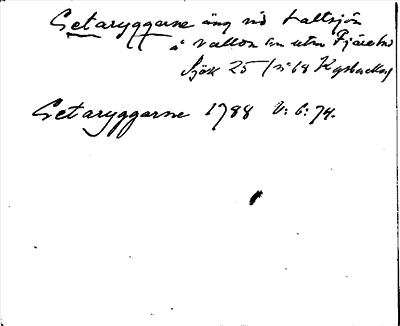 Getaryggarne äng vid Lallsjön
å Vallda sn utm Fjäre hd
Sjök 25 / 68 Kgsbacka
Getaryggarne 1788 V: 6: 74.